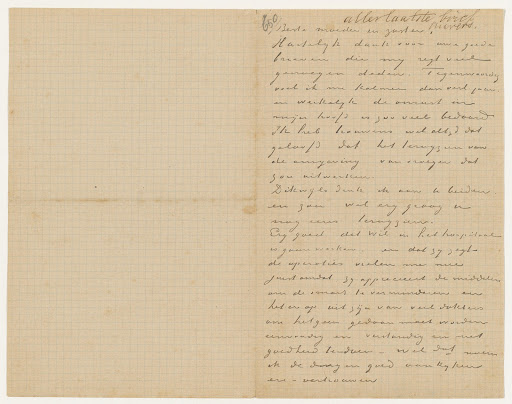 650
allerlaatste brief
Auvers.
Beste moeder en zuster,
Hartelyk dank voor uwe goede
brieven die my regt veel
genoegen deden. Tegenwoordig
voel ik me kalmer dan verl. jaar
en werkelyk de onrust in
mijn hoofd is zoo veel bedaard.
Ik heb trouwens wel altyd dat
geloofd dat het terugzien van
de omgeving van vroeger dat
zou uitwerken.
Dikwijls denk ik aan U beiden
en zou wel erg graag U
nog eens terugzien.
Erg goed dat Wil in het hospitaal
is gaan werken. en dat zy zegt
de operaties vielen me mee
juist omdat zy apprecieert de middelen
om de smart te verminderen en
het er op uit zijn van veel dokters
om hetgeen gedaan moet worden
eenvoudig en verstandig en met
goedheid te doen – wel dat noem
ik de dingen goed aankyken
en – vertrouwen